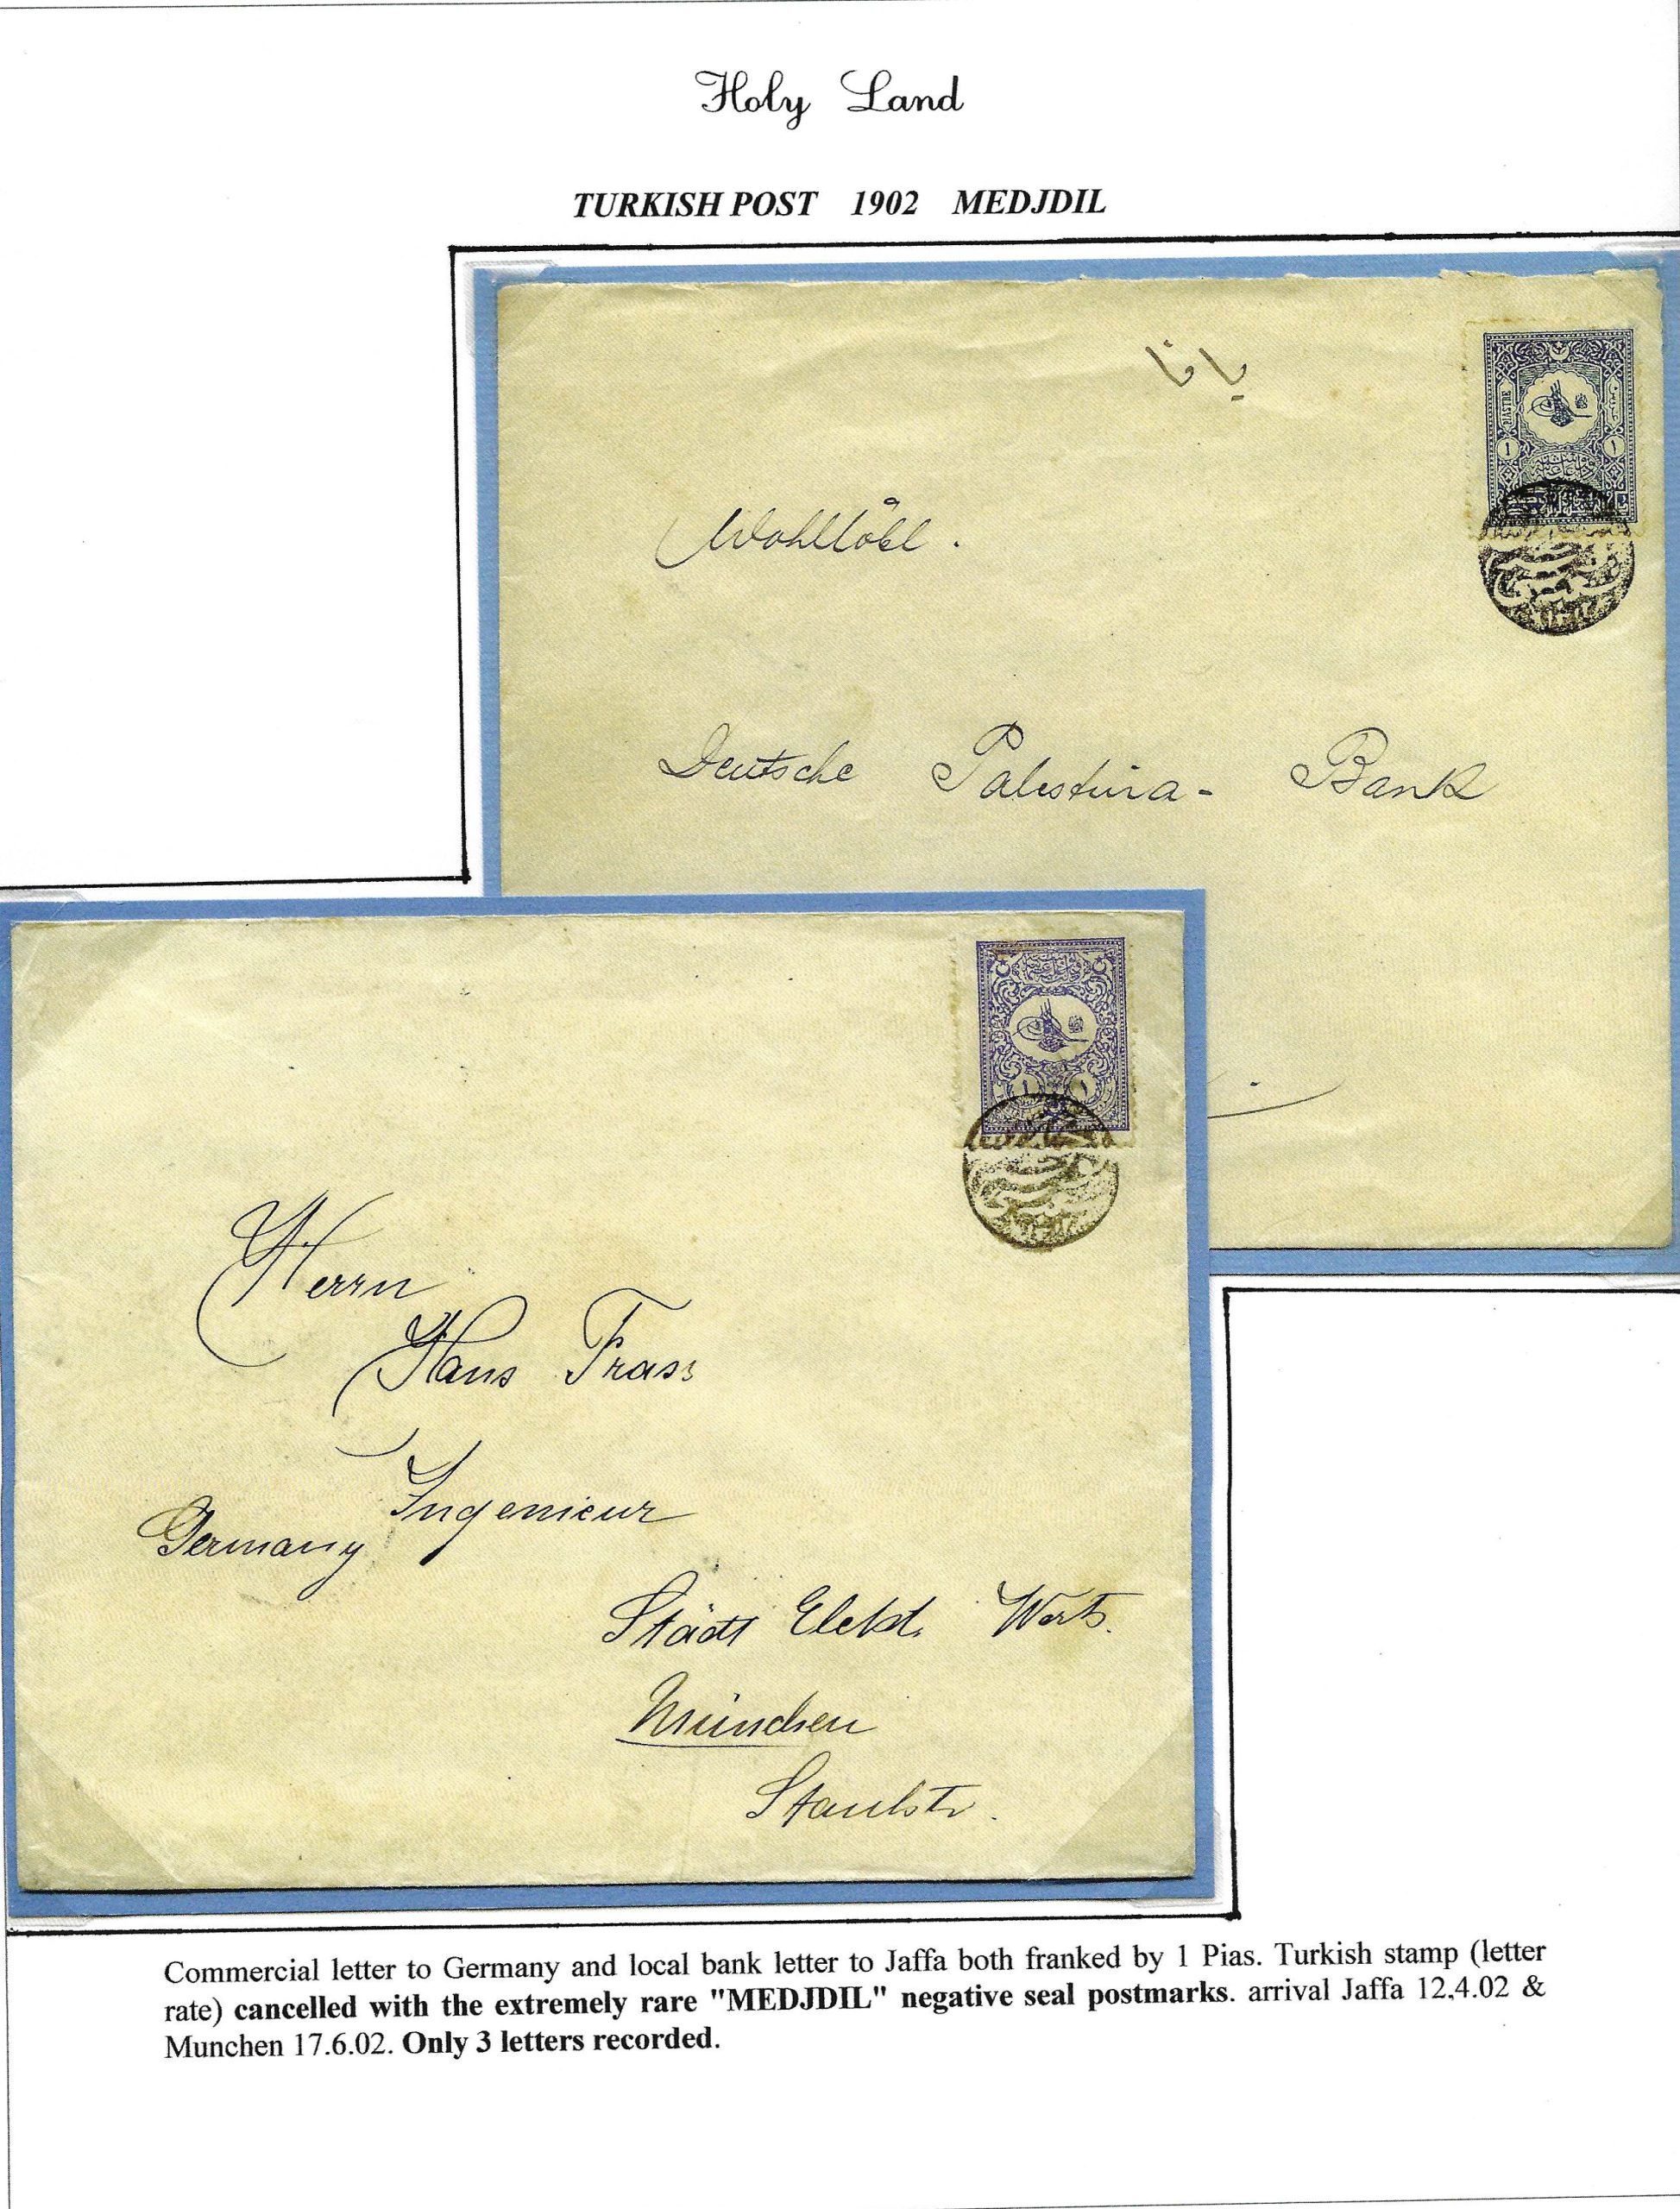 Holy Land
TURKISH POST 1902 MEDJDIL
يافا
PIASTRE
١ ١
Wohllöbl.
Deutsche Palestina- Bank
١ ١
Herrn
Hans Frass
Ingenieur
Germany
Städt Elekt. Werk.
München
Commercial letter to Germany and local bank letter to Jaffa both franked by 1 Pias. Turkish stamp (letter
rate) cancelled with the extremely rare "MEDJDIL" negative seal postmarks. arrival Jaffa 12.4.02 &
Munchen 17.6.02. Only 3 letters recorded.